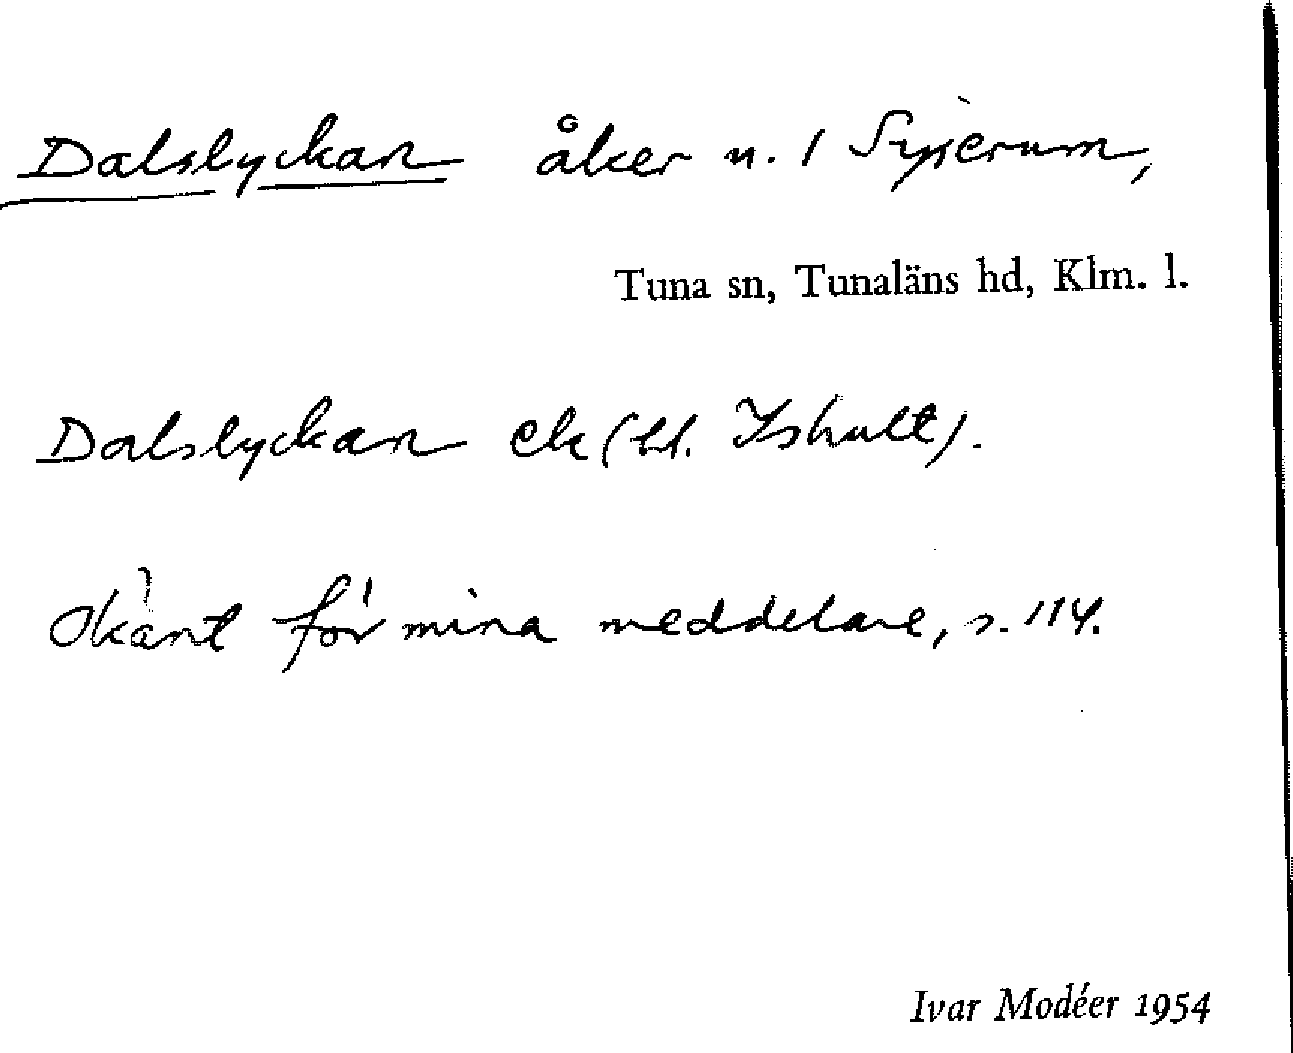 Dalslyckan åker n. 1 Syserum,
Tuna sn, Tunaläns hd, Klm. l.
Dalslyckan ek (bl. Ishult).
Okänt för mina meddelare, s. 114.
Ivar Modéer 1954